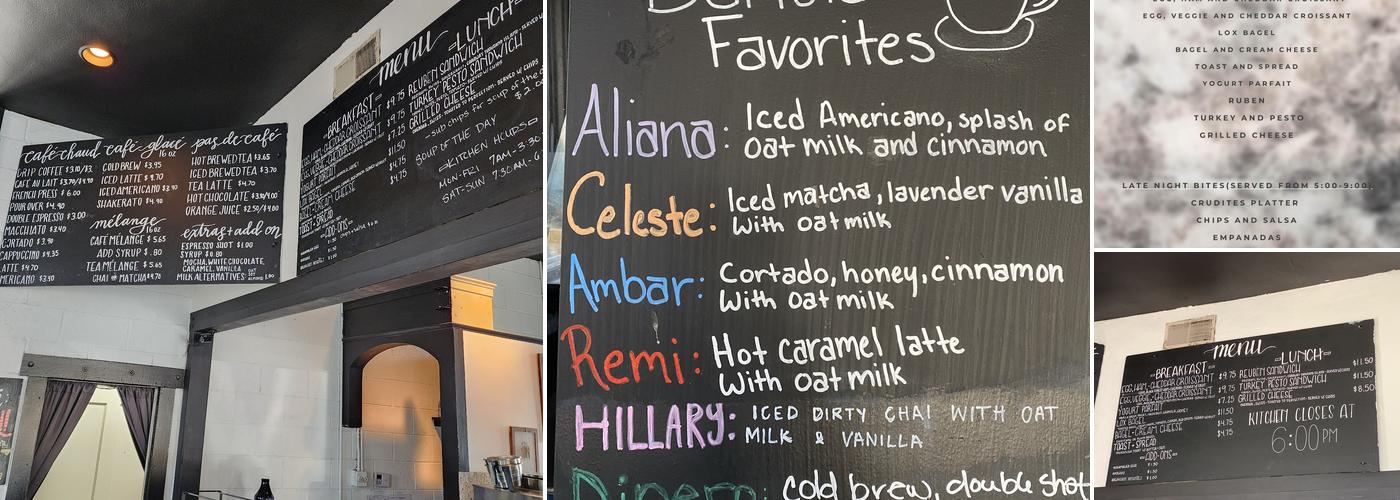 café-chaud
DRIP COFFEE
CAFÉ AU LAIT $3.70/$4.70
FRENCH PRESS $6.00
POUR OVER $4.90
DOUBLE ESPRESSO $3.00
MACCHIATO $3.40
CORTADO $3.90
CAPPUCCINO $4.35
LATTE $4.70
AMERICANO $3.40
café-glacé
16 oz
COLD BREW $3.95
ICED LATTE $4.70
ICED AMERICANO $3.90
SHAKERATO $4.90
mélange
16 oz
CAFÉ MÉLANGE $5.65
ADD SYRUP $.80
TEA MÉLANGE $5.65
CHAI or MATCHA $4.70
pas de café
HOT BREWED TEA $3.65
ICED BREWED TEA $3.65
TEA LATTE $4.70
HOT CHOCOLATE $3.90/4.00
ORANGE JUICE $2.50/$4.00
extras + add on
ESPRESSO SHOT $1.00
SYRUP $0.80
MOCHA, WHITE CHOCOLATE,
CARAMEL, VANILLA
MILK ALTERNATIVES: OAT SOY ALMOND 1.00
menu
BREAKFAST
EGG, HAM + CHEDDAR CROISSANT $9.75
EGG, VEGGIE + CHEDDAR CROISSANT $9.75
YOGURT PARFAIT $7.25
LOX BAGEL $11.50
BAGEL + CREAM CHEESE $4.75
TOAST + SPREAD $4.75
ADD-ONS
LUNCH
REUBEN SANDWICH
TURKEY PESTO SANDWICH
GRILLED CHEESE
sub chips for soup of the d
$2.0
SOUP OF THE DAY
KITCHEN HOURS
MON-FRI 7AM-3:30
SAT-SUN 7:30AM-6
Favorites
Aliana: Iced Americano, splash of
oat milk and cinnamon
Celeste: Iced matcha, lavender vanilla
with oat milk
Ambar: Cortado, honey, cinnamon
with oat milk
Remi: Hot caramel latte
with oat milk
HILLARY: ICED DIRTY CHAI WITH OAT
MILK & VANILLA
cold brew, double shot
EGG, HAM AND CHEDDAR CROISSANT
EGG, VEGGIE AND CHEDDAR CROISSANT
LOX BAGEL
BAGEL AND CREAM CHEESE
TOAST AND SPREAD
YOGURT PARFAIT
RUBEN
TURKEY AND PESTO
GRILLED CHEESE
LATE NIGHT BITES(SERVED FROM 5:00-9:00)
CRUDITES PLATTER
CHIPS AND SALSA
EMPANADAS
menu
BREAKFAST
EGG, HAM + CHEDDAR CROISSANT $9.75
EGG, VEGGIE + CHEDDAR CROISSANT $9.75
YOGURT PARFAIT $7.25
LOX BAGEL $11.50
BAGEL + CREAM CHEESE $4.75
TOAST + SPREAD $4.75
ADD-ONS
LUNCH
REUBEN SANDWICH $11.50
TURKEY PESTO SANDWICH $11.50
GRILLED CHEESE $8.50
KITCHEN CLOSES AT
6:00PM